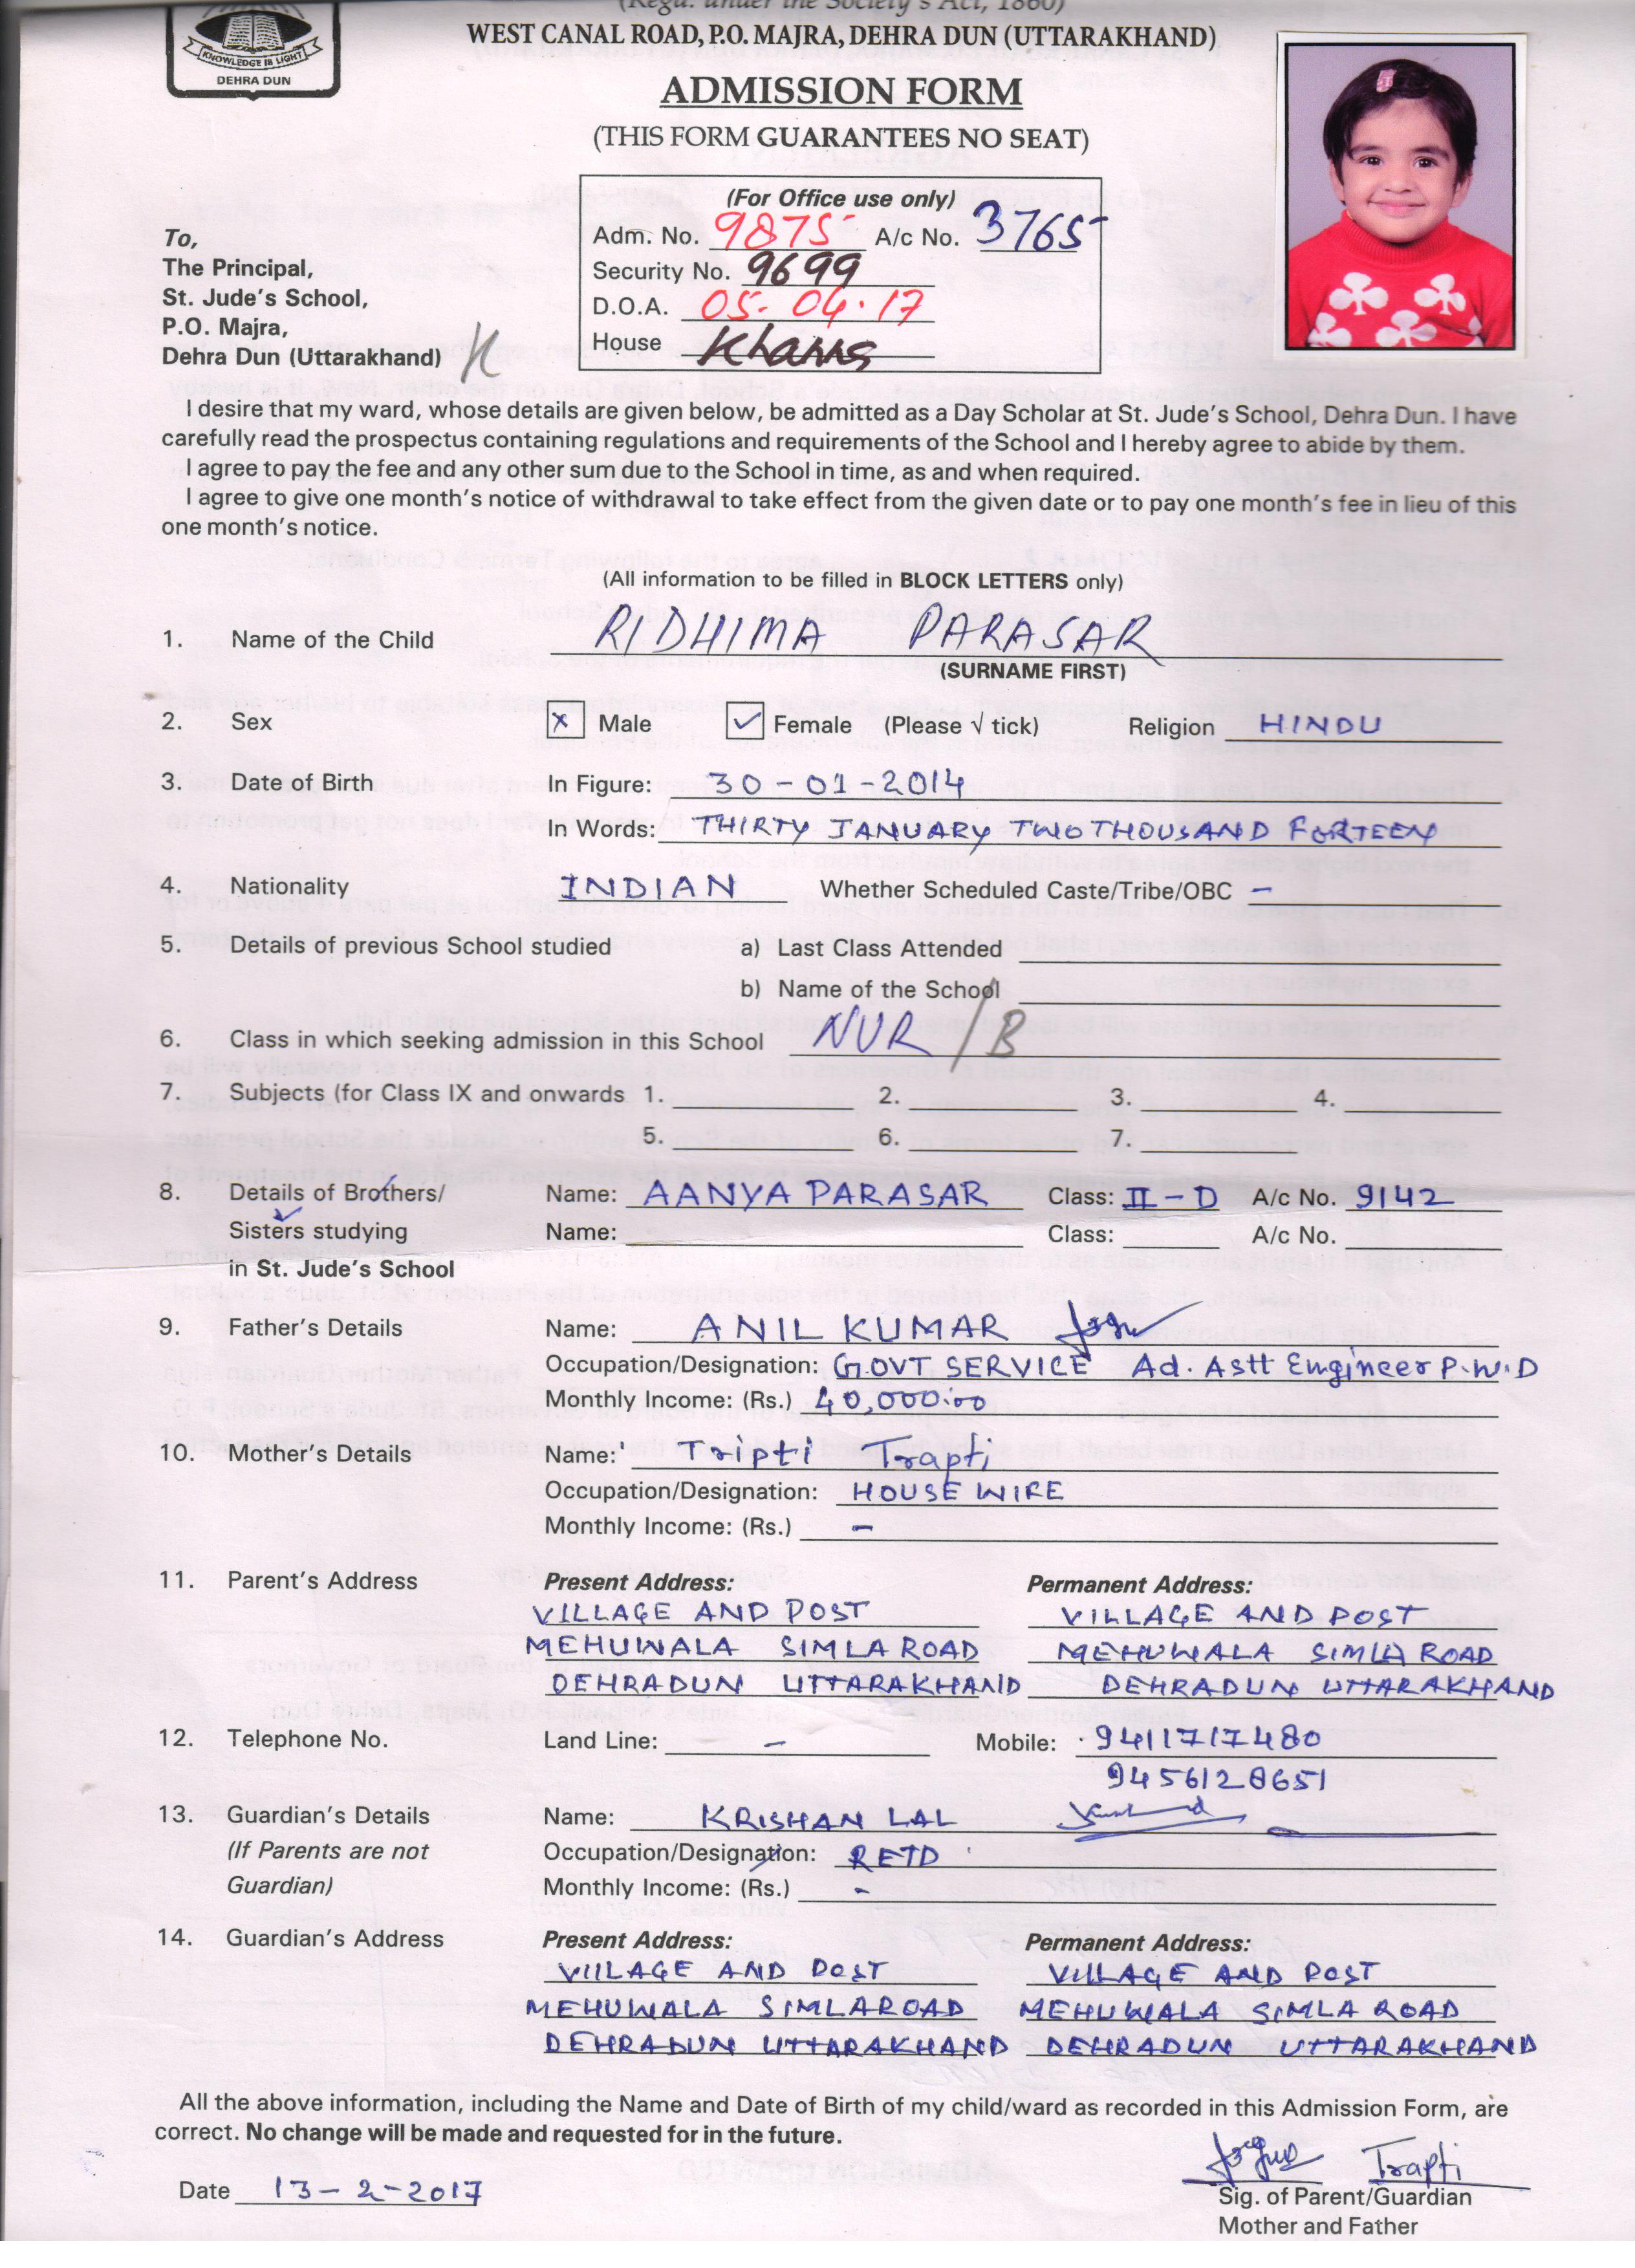 (Regd. under the Society's Act, 1860)
WEST CANAL ROAD, P.O. MAJRA, DEHRA DUN (UTTARAKHAND)
KNOWLEDGE IS LIGHT
DEHRA DUN
ADMISSION FORM
(THIS FORM GUARANTEES NO SEAT)
(For Office use only)
Adm. No. 9875 A/c No. 3765
Security No. 9699
D.O.A. 05-04-17
House Khanna
To,
The Principal,
St. Jude's School,
P.O. Majra,
Dehra Dun (Uttarakhand)
I desire that my ward, whose details are given below, be admitted as a Day Scholar at St. Jude's School, Dehra Dun. I have
carefully read the prospectus containing regulations and requirements of the School and I hereby agree to abide by them.
I agree to pay the fee and any other sum due to the School in time, as and when required.
I agree to give one month's notice of withdrawal to take effect from the given date or to pay one month's fee in lieu of this
one month's notice.
(All information to be filled in BLOCK LETTERS only)
1. Name of the Child RIDHIMA PARASAR
(SURNAME FIRST)
2. Sex x Male ✓ Female (Please √ tick) Religion HINDU
3. Date of Birth In Figure: 30-01-2014
In Words: THIRTY JANUARY TWO THOUSAND FORTEEN
4. Nationality INDIAN Whether Scheduled Caste/Tribe/OBC –
5. Details of previous School studied a) Last Class Attended
b) Name of the School
6. Class in which seeking admission in this School NUR / B
7. Subjects (for Class IX and onwards 1. 2. 3. 4.
5. 6. 7.
8. Details of Brothers/ Name: AANYA PARASAR Class: II-D A/c No. 9142
Sisters studying Name: Class: A/c No.
in St. Jude's School
9. Father's Details Name: ANIL KUMAR
Occupation/Designation: GOVT SERVICE Ad. Astt Engineer P.W.D
Monthly Income: (Rs.) 40,000.00
10. Mother's Details Name: Tripti Trapti
Occupation/Designation: HOUSE WIRE
Monthly Income: (Rs.) –
11. Parent's Address Present Address: Permanent Address:
VILLAGE AND POST VILLAGE AND POST
MEHUWALA SIMLA ROAD MEHUWALA SIMLA ROAD
DEHRADUN UTTARAKHAND DEHRADUN UTTARAKHAND
12. Telephone No. Land Line: – Mobile: 9411717480
9456128651
13. Guardian's Details Name: KRISHAN LAL
(If Parents are not Occupation/Designation: RETD
Guardian) Monthly Income: (Rs.) -
14. Guardian's Address Present Address: Permanent Address:
VIILLAGE AND POST VILLAGE AND POST
MEHUWALA SIMLA ROAD MEHUWALA SIMLA ROAD
DEHRADUN UTTARAKHAND DEHRADUN UTTARAKHAND
All the above information, including the Name and Date of Birth of my child/ward as recorded in this Admission Form, are
correct. No change will be made and requested for in the future.
Trapti
Date 13-2-2017
Sig. of Parent/Guardian
Mother and Father